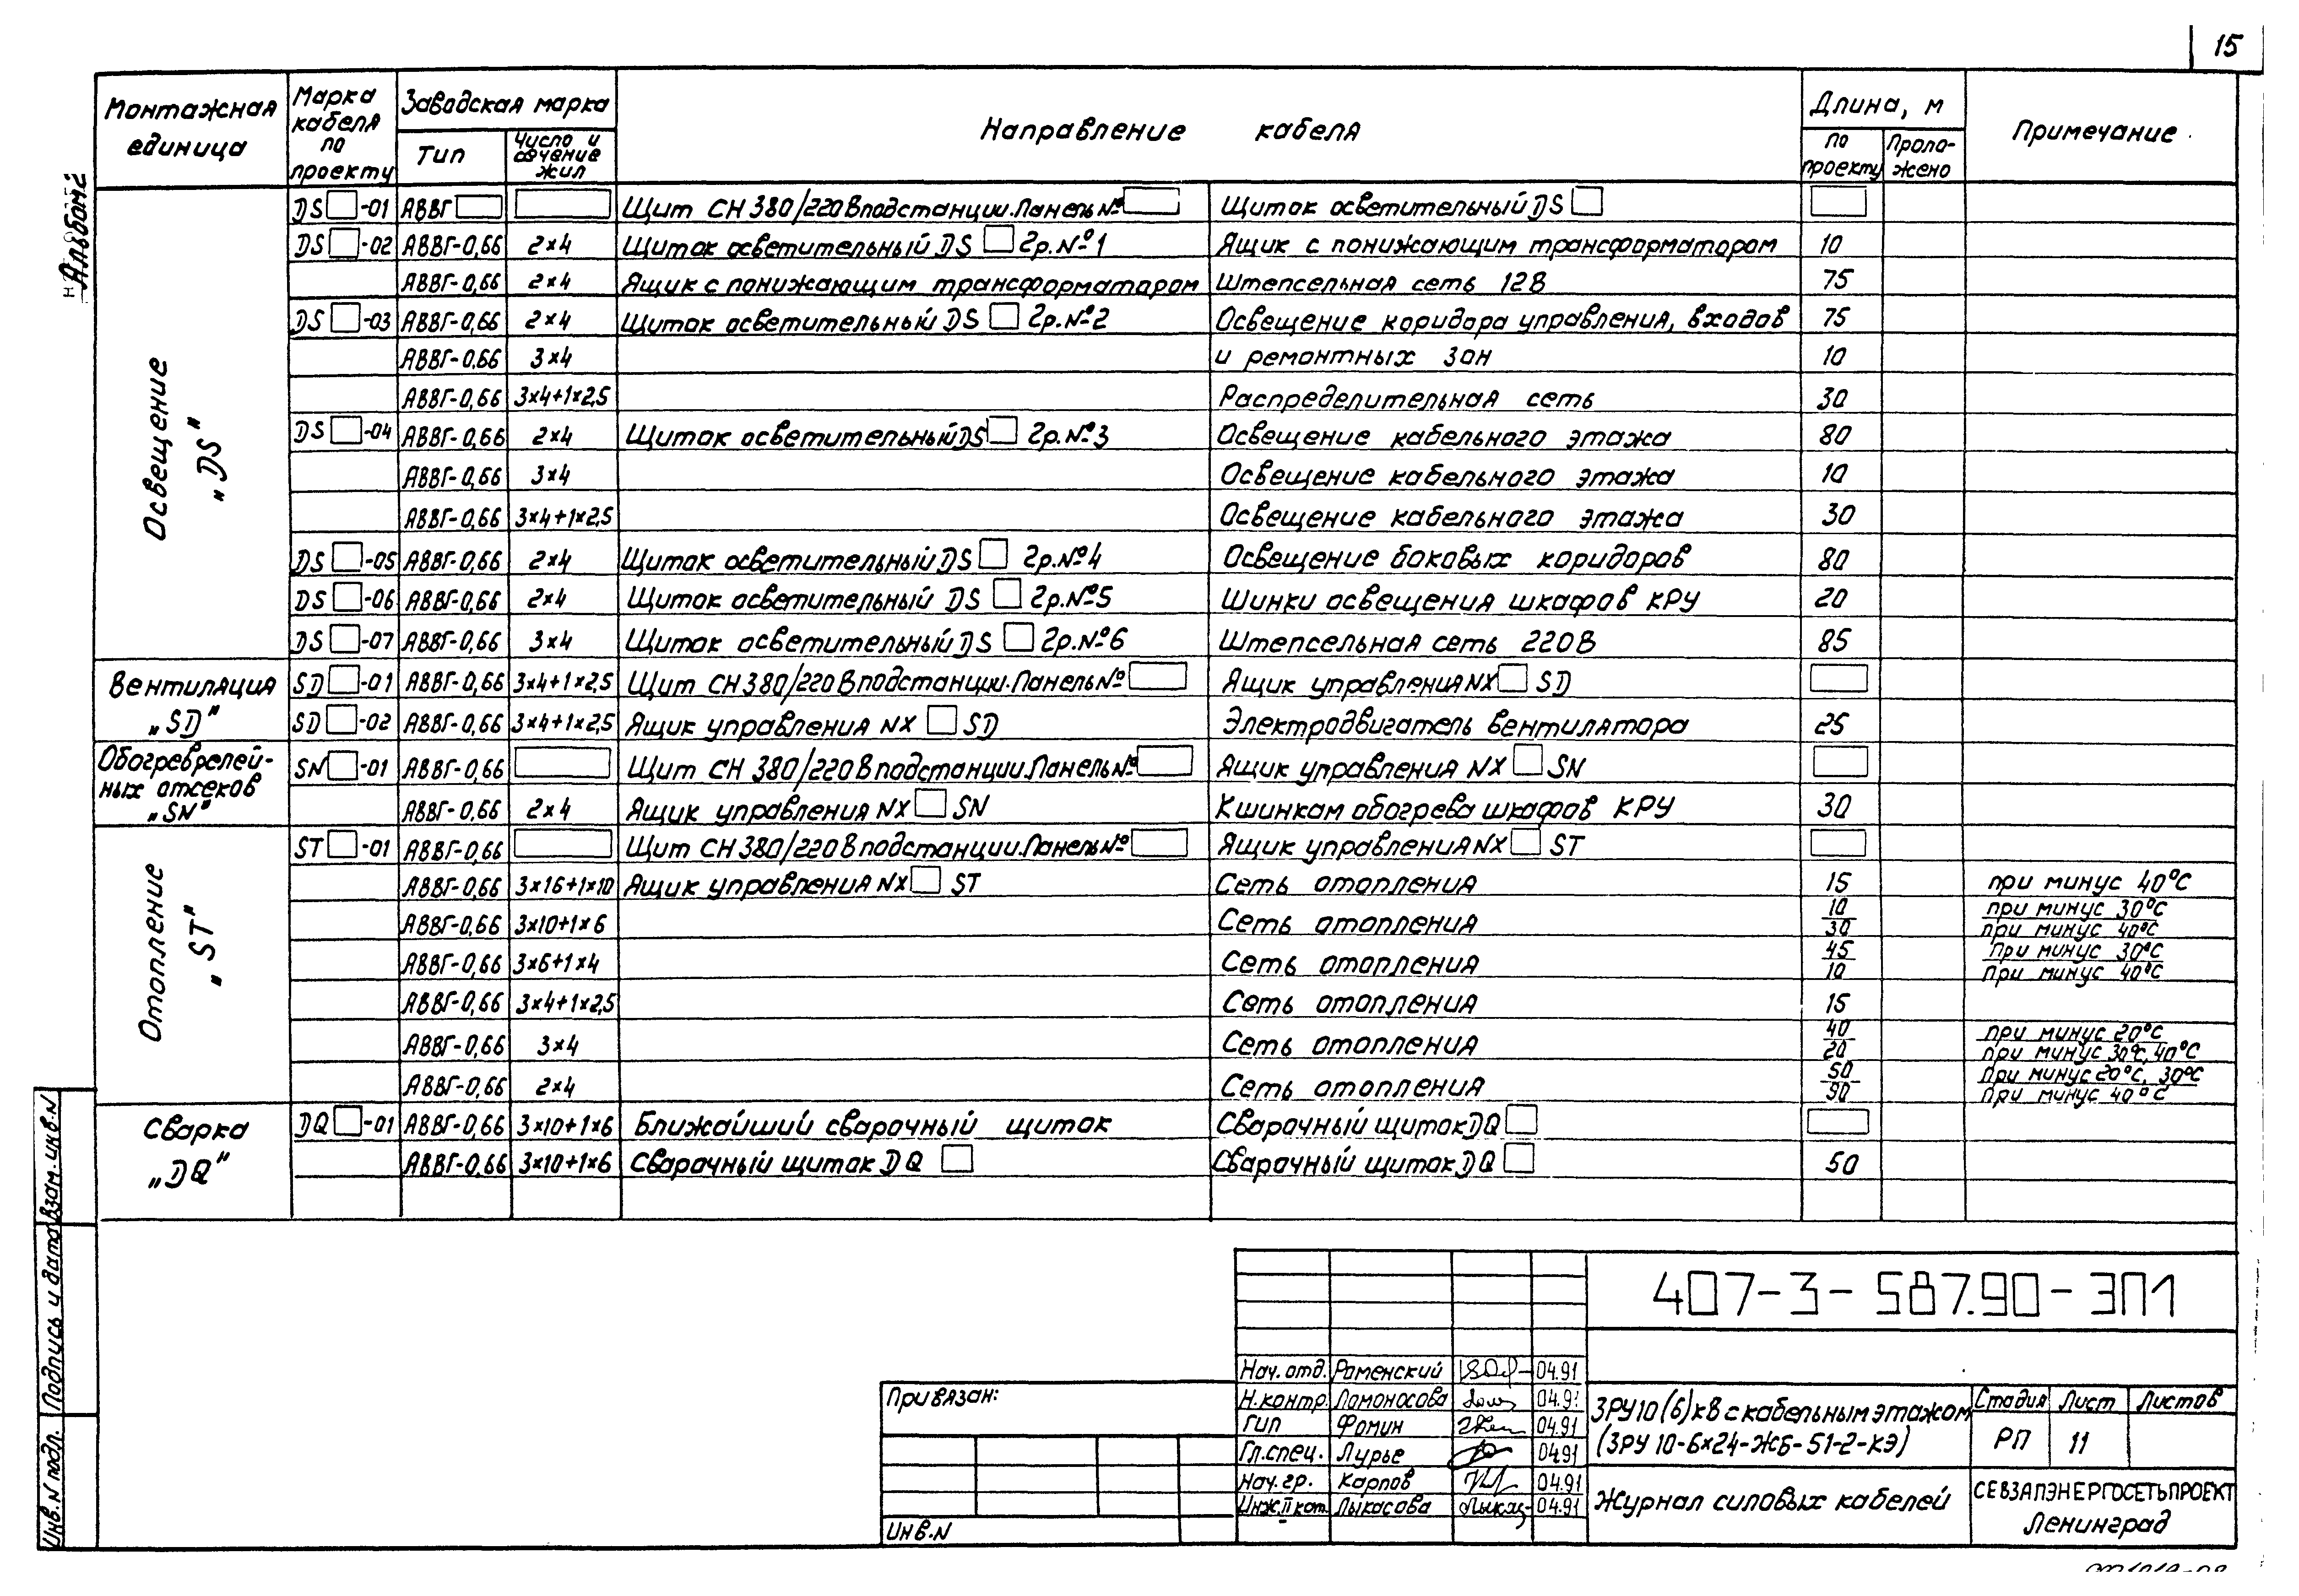 15
Альбом 2
Монтажная единица
Марка кабеля по проекту
Заводская марка
Тип
Число и сечение жил
Направление кабеля
Длина, м
по проекту
Проложено
Примечание
Освещение „DS"
DS □-01 АВВГ □ □ Щит СН 380/220В подстанции. Панель № □ Щиток осветительный DS □ □
DS □-02 АВВГ-0,66 2×4 Щиток осветительный DS □ гр.№1 Ящик с понижающим трансформатором 10
АВВГ-0,66 2×4 Ящик с понижающим трансформатором Штепсельная сеть 12В 75
DS □-03 АВВГ-0,66 2×4 Щиток осветительный DS □ гр.№2 Освещение коридора управления, входов 75
АВВГ-0,66 3×4 и ремонтных зон 10
АВВГ-0,66 3×4+1×2,5 Распределительная сеть 30
DS □-04 АВВГ-0,66 2×4 Щиток осветительный DS □ гр.№3 Освещение кабельного этажа 80
АВВГ-0,66 3×4 Освещение кабельного этажа 10
АВВГ-0,66 3×4+1×2,5 Освещение кабельного этажа 30
DS □-05 АВВГ-0,66 2×4 Щиток осветительный DS □ гр.№4 Освещение боковых коридоров 80
DS □-06 АВВГ-0,66 2×4 Щиток осветительный DS □ гр.№5 Шинки освещения шкафов КРУ 20
DS □-07 АВВГ-0,66 3×4 Щиток осветительный DS □ гр.№6 Штепсельная сеть 220В 85
Вентиляция „SD"
SD □-01 АВВГ-0,66 3×4+1×2,5 Щит СН 380/220В подстанции. Панель № □ Ящик управления NX □ SD □
SD □-02 АВВГ-0,66 3×4+1×2,5 Ящик управления NX □ SD Электродвигатель вентилятора 25
Обогрев релейных отсеков „SN"
SN □-01 АВВГ-0,66 □ Щит СН 380/220В подстанции. Панель № □ Ящик управления NX □ SN □
АВВГ-0,66 2×4 Ящик управления NX □ SN К шинкам обогрева шкафов КРУ 30
Отопление „ST"
ST □-01 АВВГ-0,66 □ Щит СН 380/220В подстанции. Панель № □ Ящик управления NX □ ST □
АВВГ-0,66 3×16+1×10 Ящик управления NX □ ST Сеть отопления 15 при минус 40°С
АВВГ-0,66 3×10+1×6 Сеть отопления 10 при минус 30°С
30 при минус 40°С
АВВГ-0,66 3×6+1×4 Сеть отопления 45 При минус 30°С
10 При минус 40°С
АВВГ-0,66 3×4+1×2,5 Сеть отопления 15
АВВГ-0,66 3×4 Сеть отопления 40 при минус 20°С
20 при минус 30°С, 40°С
АВВГ-0,66 2×4 Сеть отопления 50 При минус 20°С, 30°С
90 При минус 40°С
Сварка „DQ"
DQ □-01 АВВГ-0,66 3×10+1×6 Ближайший сварочный щиток Сварочный щиток DQ □ □
АВВГ-0,66 3×10+1×6 Сварочный щиток DQ □ Сварочный щиток DQ □ 50
Взам. инв. N
Подпись и дата
Инв. N подл.
Привязан:
Инв. N
407-3-587.90-ЭП1
Нач. отд. Роменский 04.91
Н. контр. Ломоносова 04.91
ГИП Фомин 04.91
Гл. спец. Лурье 04.91
Нач. гр. Карпов 04.91
Инж. II кат. Лыкасова 04.91
ЗРУ 10 (6) кВ с кабельным этажом
(ЗРУ 10-6×24-ЖБ-51-2-КЭ)
Стадия Лист Листов
РП 11
Журнал силовых кабелей
СЕВЗАПЭНЕРГОСЕТЬПРОЕКТ
Ленинград